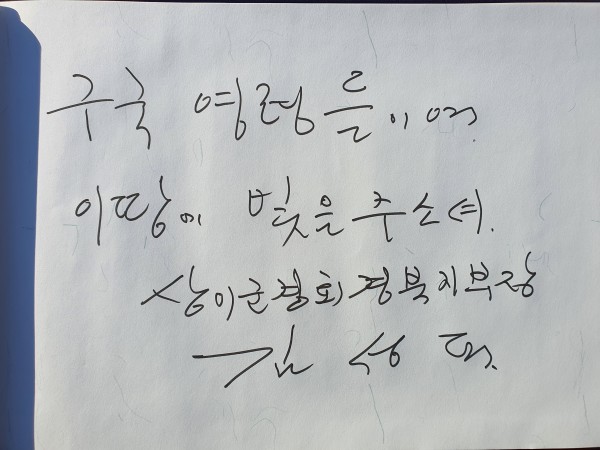 구국 영령들이여
이땅에 빛을 주소서.
상이군경회경북지부장
김 성